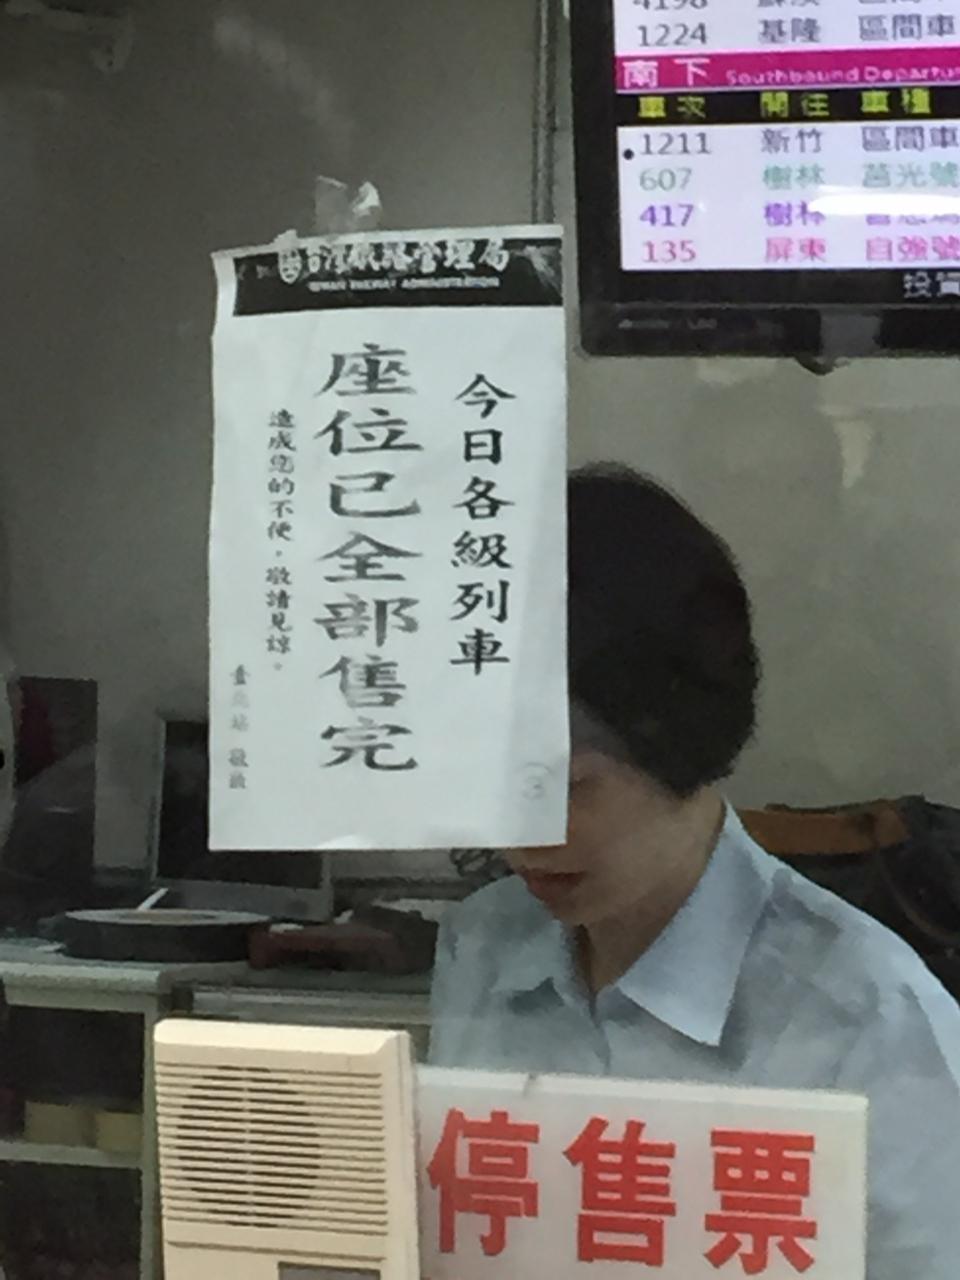 1224 基隆 區間車
南下 Southbound Departur
車次 開往 車種
1211 新竹 區間車
607 樹林 莒光號
417 樹林
135 屏東 自強號
投
台灣鐵路管理局
TAIWAN RAILWAY ADMINISTRATION
今日各級列車
座位已全部售完
造成您的不便，敬請見諒。
臺北站 敬啟
停售票